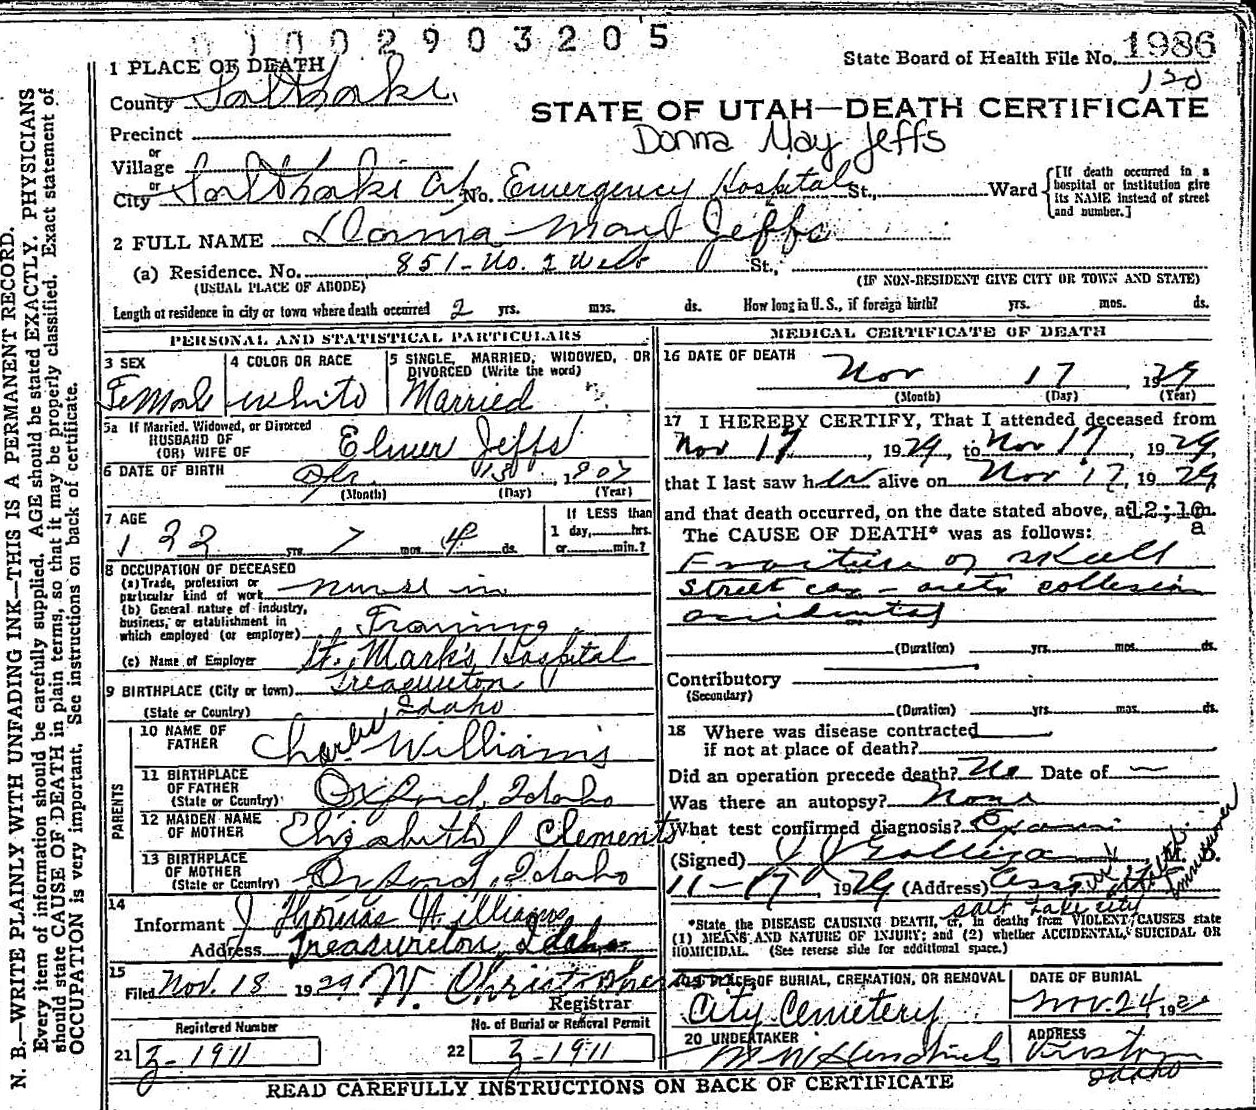 0 1 0 0 2 9 0 3 2 0 5
State Board of Health File No. 1986
1 PLACE OF DEATH
County Salt Lake
STATE OF UTAH—DEATH CERTIFICATE
Precinct
Donna May Jeffs
or
Village
or
City Salt Lake City No. Emergency Hospital St., Ward
[If death occurred in a hospital or institution give its NAME instead of street and number.]
2 FULL NAME Donna May Jeffs
(a) Residence. No. 851 - No. 2 West St.,
(USUAL PLACE OF ABODE) (IF NON-RESIDENT GIVE CITY OR TOWN AND STATE)
Length of residence in city or town where death occurred 2 yrs. mos. ds. How long in U. S., if foreign birth? yrs. mos. ds.
PERSONAL AND STATISTICAL PARTICULARS
3 SEX
Female
4 COLOR OR RACE
white
5 SINGLE, MARRIED, WIDOWED, OR DIVORCED (Write the word)
Married
5a If Married, Widowed, or Divorced
HUSBAND OF
(OR) WIFE OF Elmer Jeffs
6 DATE OF BIRTH Apr. 13 1907
(Month) (Day) (Year)
7 AGE
22 yrs. 7 mos. 4 ds.
If LESS than
1 day, hrs.
or min.?
8 OCCUPATION OF DECEASED
(a) Trade, profession or
particular kind of work nurse in
(b) General nature of industry,
business, or establishment in
which employed (or employer) Training
(c) Name of Employer St. Mark's Hospital
9 BIRTHPLACE (City or town) Treasureton
(State or Country) Idaho
PARENTS
10 NAME OF
FATHER Charles Williams
11 BIRTHPLACE
OF FATHER
(State or Country) Oxford, Idaho
12 MAIDEN NAME
OF MOTHER Elizabeth J Clements
13 BIRTHPLACE
OF MOTHER
(State or Country) Oxford, Idaho
14
Informant J Thomas Williams
Address Treasureton, Idaho
15
Filed Nov. 18 1929 W. Christopherson
Registrar
Registered Number
21 Z-1911
No. of Burial or Removal Permit
22 Z-1911
MEDICAL CERTIFICATE OF DEATH
16 DATE OF DEATH
Nov 17, 1929
(Month) (Day) (Year)
17 I HEREBY CERTIFY, That I attended deceased from
Nov 17, 1929, to Nov 17, 1929,
that I last saw her alive on Nov 17, 1929
and that death occurred, on the date stated above, at 12:10 a m.
The CAUSE OF DEATH* was as follows:
Fracture of Skull
Street car - auto collision
accidental
(Duration) yrs. mos. ds.
Contributory
(Secondary)
(Duration) yrs. mos. ds.
18 Where was disease contracted
if not at place of death?
Did an operation precede death? No Date of —
Was there an autopsy? None
What test confirmed diagnosis? Exam
(Signed)
11-17 1929 (Address)
Salt Lake City
*State the DISEASE CAUSING DEATH, or, in deaths from VIOLENT CAUSES state
(1) MEANS AND NATURE OF INJURY; and (2) whether ACCIDENTAL, SUICIDAL OR
HOMICIDAL. (See reverse side for additional space.)
19 PLACE OF BURIAL, CREMATION, OR REMOVAL
City Cemetery
DATE OF BURIAL
Nov. 24, 192
20 UNDERTAKER
ADDRESS
Preston
Idaho
READ CAREFULLY INSTRUCTIONS ON BACK OF CERTIFICATE
N. B.—WRITE PLAINLY WITH UNFADING INK—THIS IS A PERMANENT RECORD.
Every item of information should be carefully supplied. AGE should be stated EXACTLY. PHYSICIANS
should state CAUSE OF DEATH in plain terms, so that it may be properly classified. Exact statement of
OCCUPATION is very important. See instructions on back of certificate.